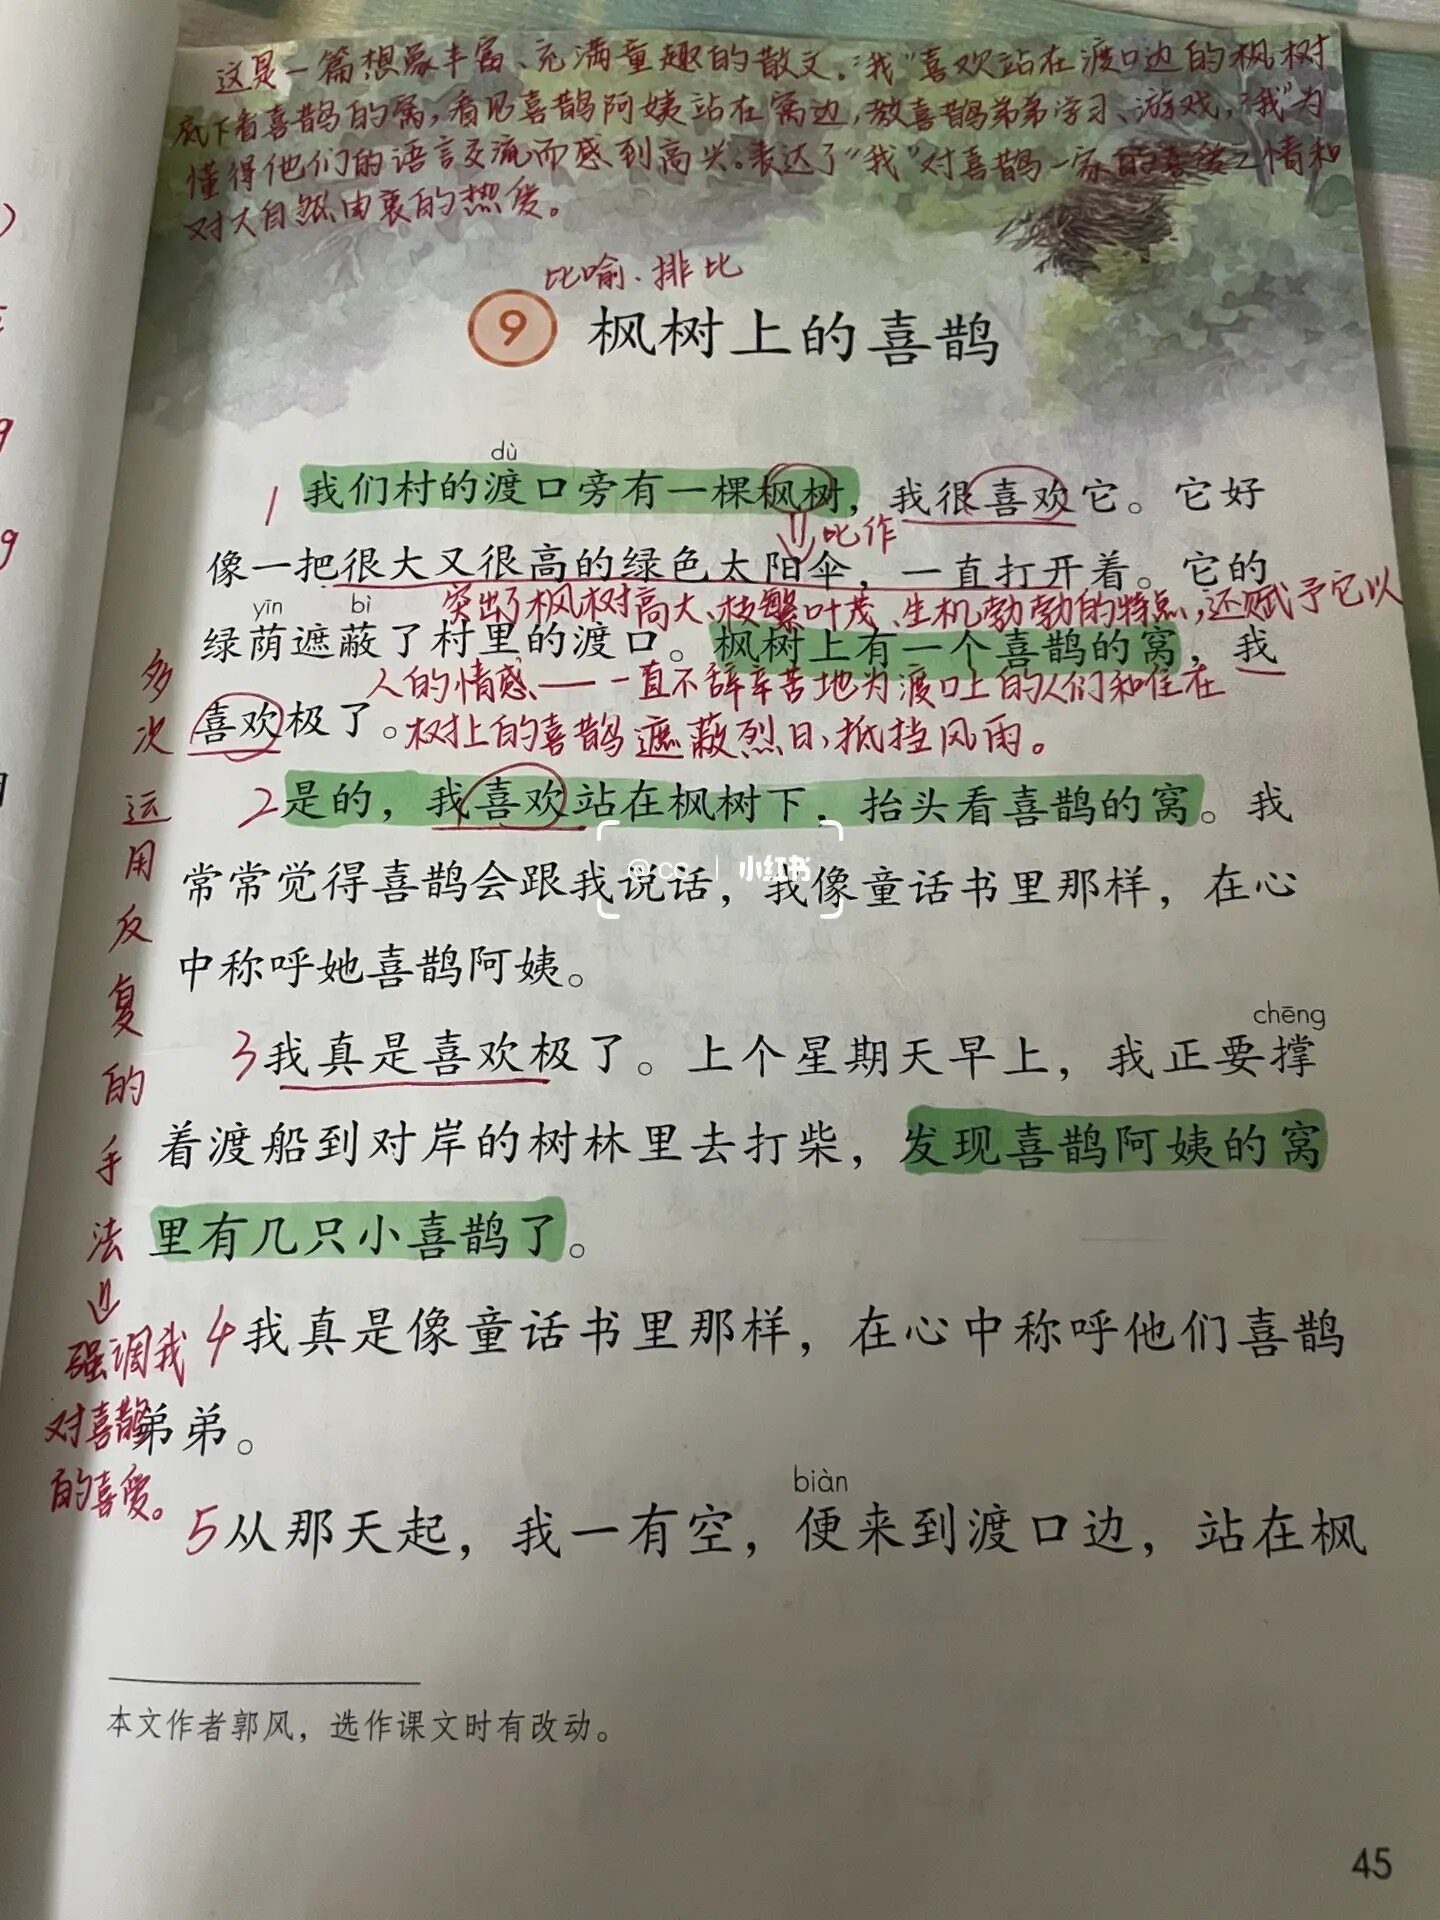 这是一篇想象丰富、充满童趣的散文。“我”喜欢站在渡口边的枫树
底下看喜鹊的窝,看见喜鹊阿姨站在窝边,教喜鹊弟弟学习、游戏,“我”为
懂得他们的语言交流而感到高兴。表达了“我”对喜鹊一家的喜爱之情和
对大自然由衷的热爱。
比喻、排比
9 枫树上的喜鹊
dù
1 我们村的渡口旁有一棵枫树,我很喜欢它。它好
比作
像一把很大又很高的绿色太阳伞,一直打开着。它的
突出了枫树高大、枝繁叶茂、生机勃勃的特点,还赋予它以
yīn bì
绿荫遮蔽了村里的渡口。枫树上有一个喜鹊的窝,我
人的情感、——一直不辞辛苦地为渡口上的人们和住在
喜欢极了。
树上的喜鹊遮蔽烈日、抵挡风雨。
2是的,我喜欢站在枫树下,抬头看喜鹊的窝。我
@cc | 小红书
常常觉得喜鹊会跟我说话,我像童话书里那样,在心
中称呼她喜鹊阿姨。
chēng
3我真是喜欢极了。上个星期天早上,我正要撑
着渡船到对岸的树林里去打柴,发现喜鹊阿姨的窝
里有几只小喜鹊了。
4我真是像童话书里那样,在心中称呼他们喜鹊
弟弟。
biàn
5从那天起,我一有空,便来到渡口边,站在枫
多次运用反复的手法
强调我
对喜鹊
的喜爱。
本文作者郭风,选作课文时有改动。
45